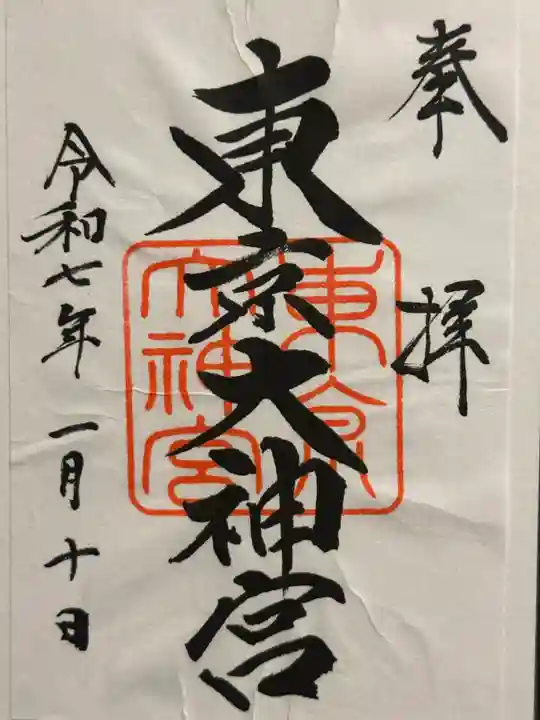 奉拝
東京大神宮
東京
大神宮
令和七年 一月十日